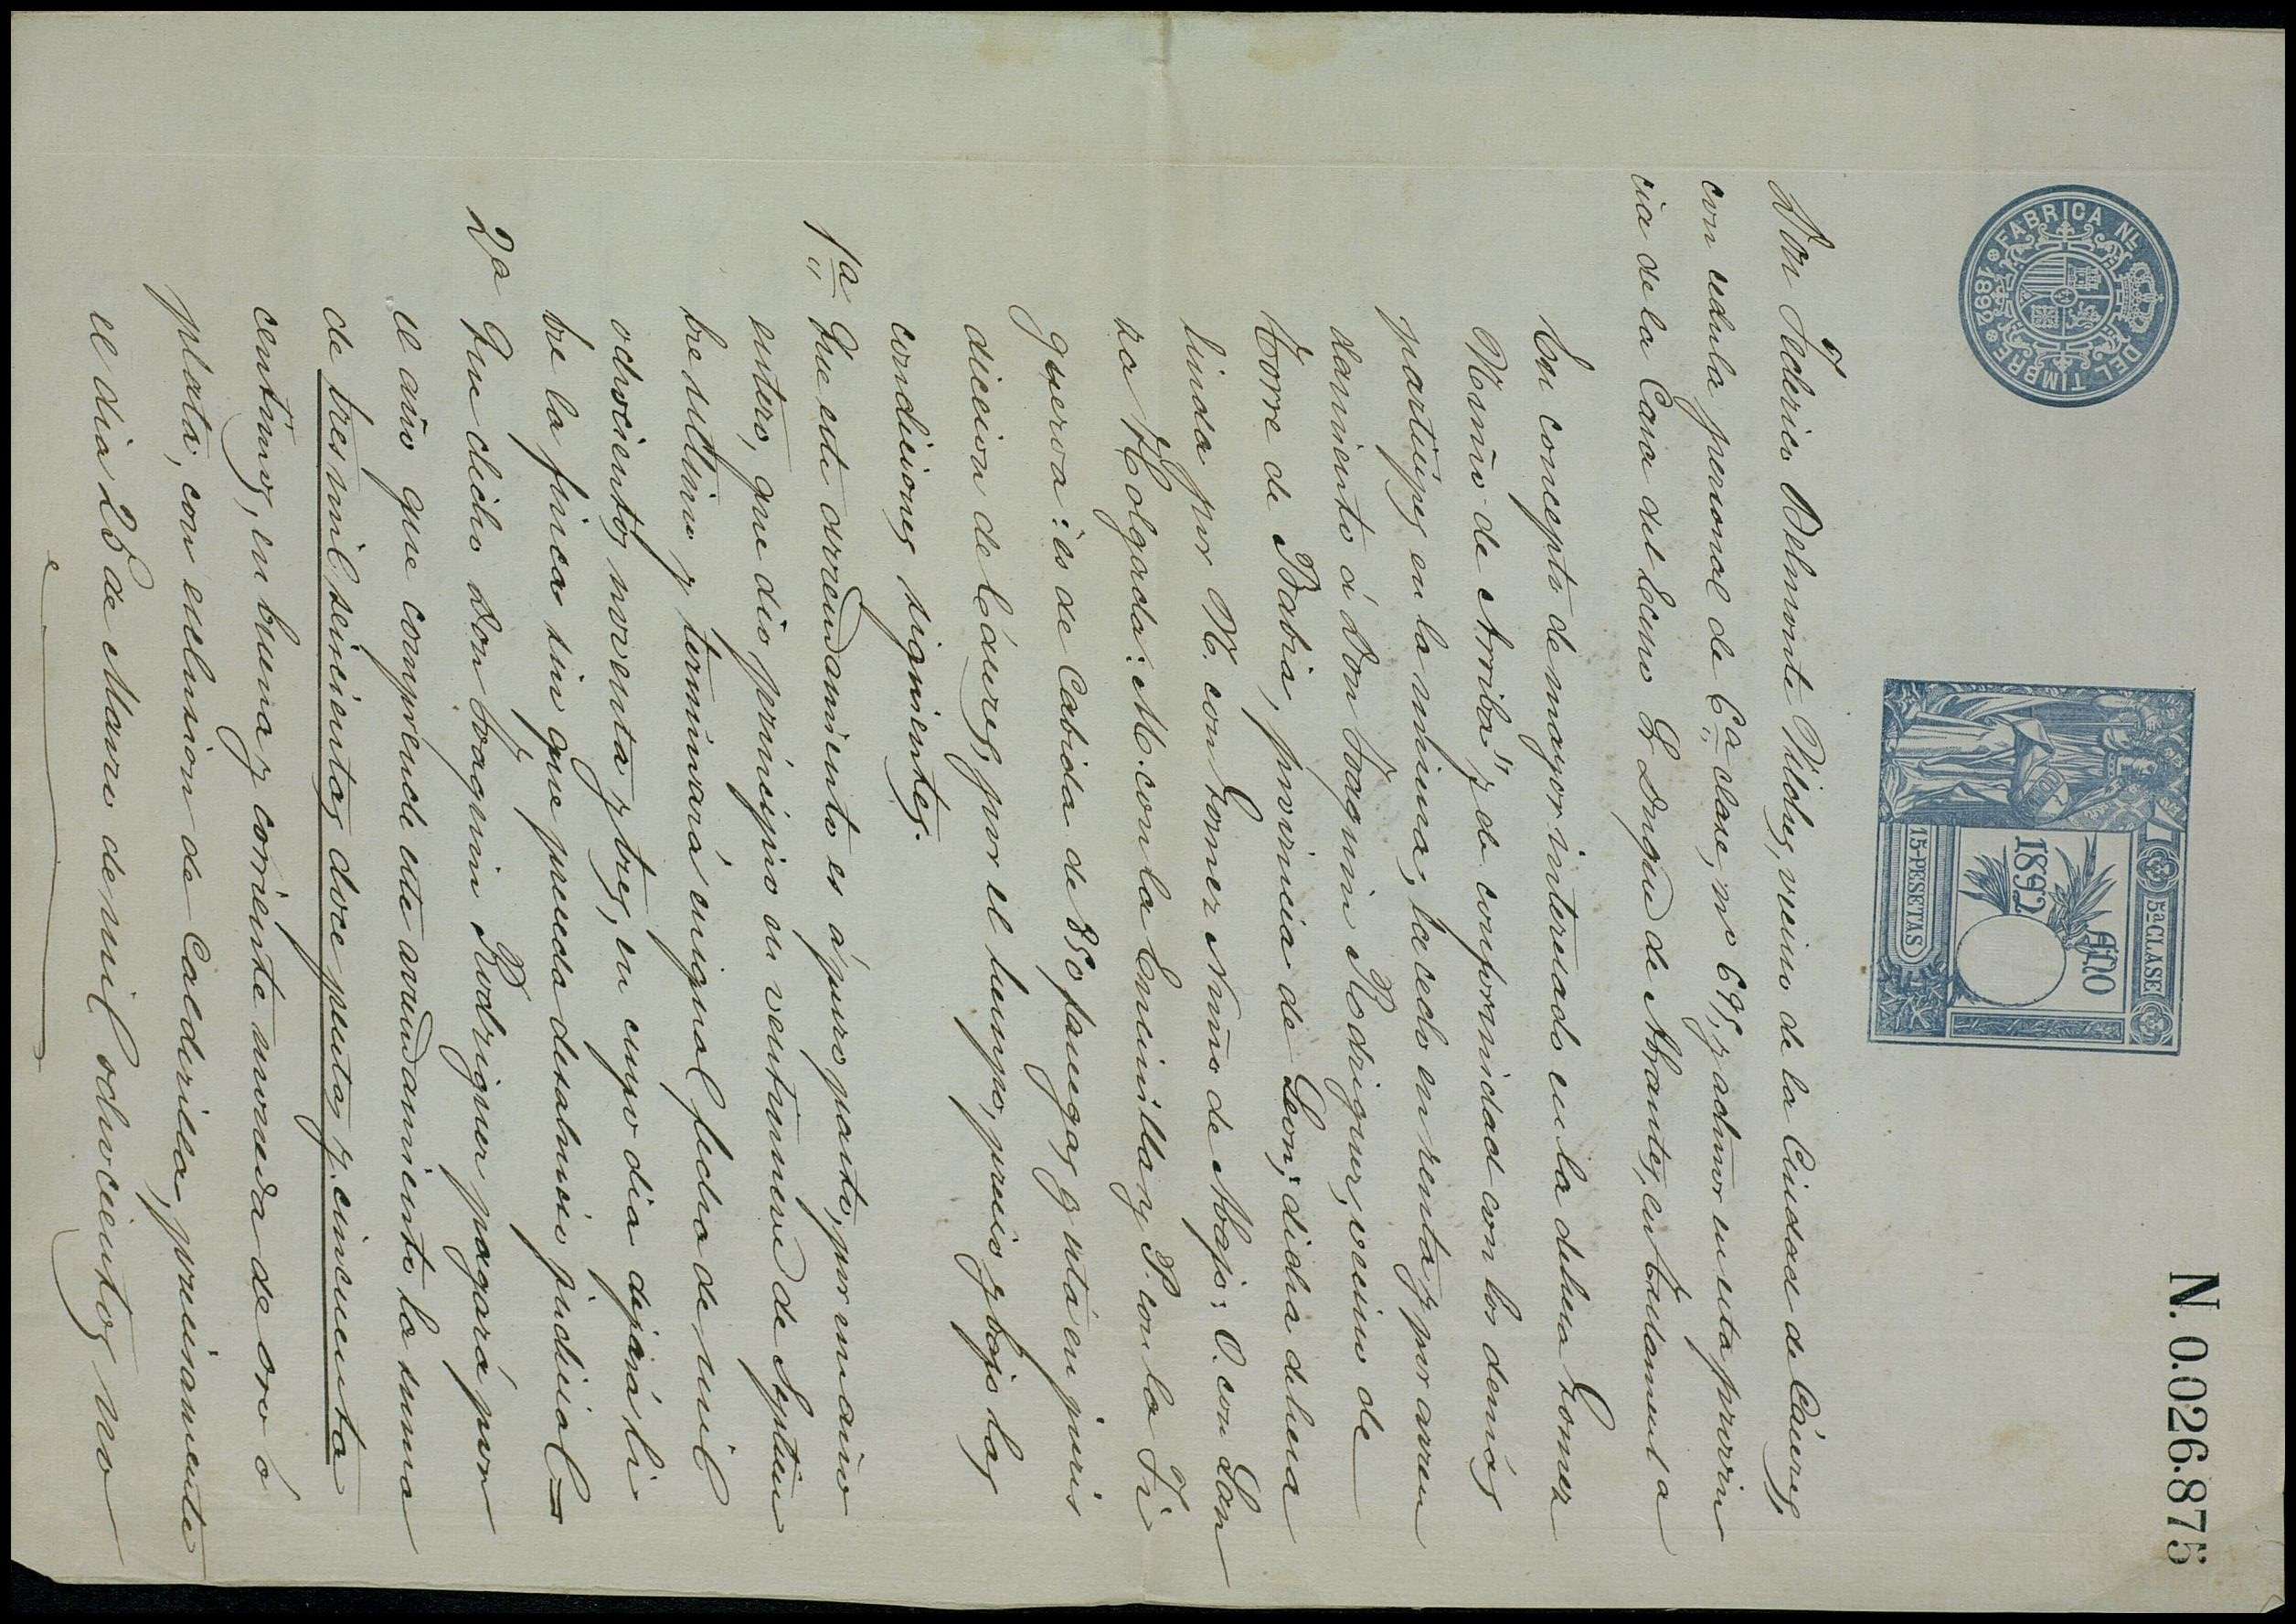 N. 0.026.875
FABRICA NL. DEL TIMBRE
1892
5ª CLASE
AÑO
1892
15-PESETAS
Don Federico Belmonte Vildes, vecino de la Ciudad de Cáceres
con cedula personal de 6ª clase, nº 695, y admor en esta provin
cia de la Casa del Ecmo Sr Duque de Abrantes,
En concepto de mayor interesado en la dehesa Gomez
Nuño de Arriba, y de conformidad con los demás
participes en la misma, la cedo en renta y por arren
damiento á Don Joaquin Rodriguez, vecino de
Torre de Babia, provincia de Leon; dicha dehesa
linda por N. con Gomez Nuño de Abajo: O. con Lan
za Holgada: M. con la Encinilla y P. con la Fi
guerva: es de cabida de 850 fanegas y está en juris
diccion de Cáceres, por el tiempo, precio y bajo las
condiciones siguientes.
1ª Que este arrendamiento es á puro pasto, por un año
entero, que dió principio en veintinueve de Septiem
bre ultimo y terminará en igual fecha de mil
ochocientos noventa y tres, en cuyo dia dejará li
bre la finca sin que preceda desahucio judicial=
2ª Que dicho Don Joaquin Rodriguez pagará por
el año que comprende este arrendamiento la suma
de tres mil seiscientas doce pesetas y cincuenta
centimos, en buena y corriente moneda de oro ó
plata, con exclusion de calderilla, precisamente
el dia 25 de Marzo de mil ochocientos no